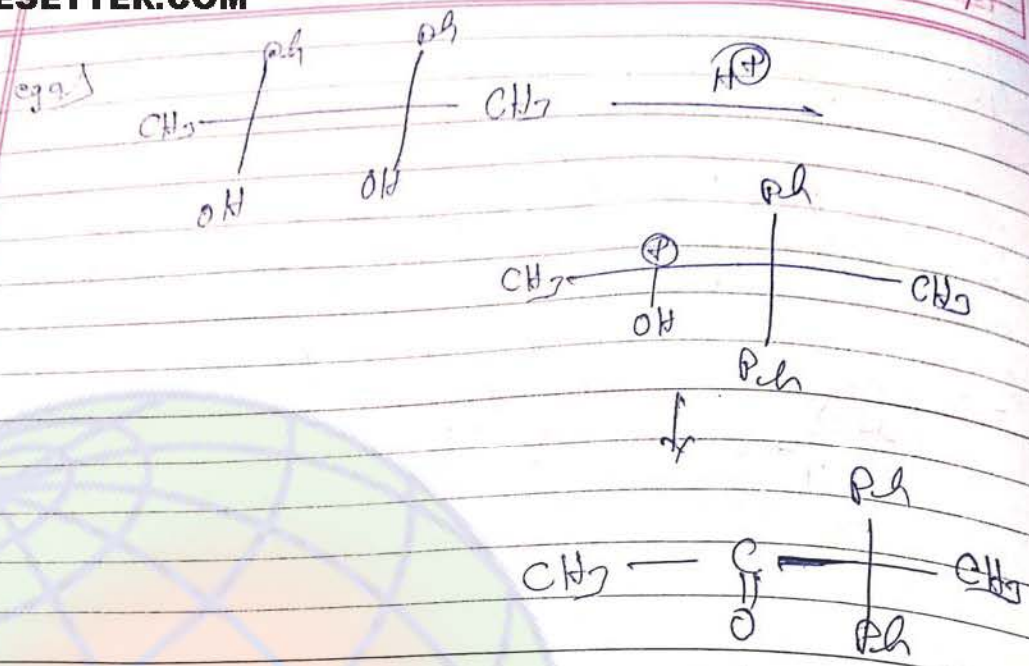 ESETTER.COM
Ph Ph
CH3 CH3 H⊕
OH OH
Ph
CH3 ⊕ CH3
OH
Ph
Ph
CH3 — C — CH3
O
Ph